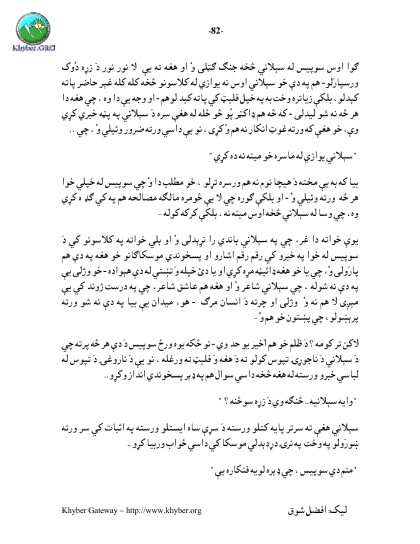 Khyber.ORG
-82-
ګوا اوس سوېبس له سېلاني څخه جنګ ګټلی وْ او هغه ته يې لا نور نور دَ زړه دُوک
ورسپارلو- هم په دې خو سېلاني اوس نه يوازې له کلاسونو څخه کله کله غېر حاضر پاته
کېدلو ، بلکې زياتره وخت به په خپل فلېټ کي پاته کېدلو هم - او وجه يې دا وه ، چي هغه دا
هر څه نه شو لېدلی - که څه هم ډاکټر پُو څو ځله له هغې سره دَ سېلاني په پټه خبرې کړې
وې، خو هغې که ورته غوټ انکار نه هم وْ کړی ، نو يې داسي ورته ضرور وئيلي وْ ، چي ..
"سېلاني يوازې له ما سره خو مينه نه ده کړې"
بيا که به يې مخته دَ هيچا نوم نه هم ورسره تړلو ، خو مطلب دا وْ چي سوېبس له خپلي خوا
هر څه ورته وئيلي وْ - او بلکې ګوره چي لا يې څومره مالګه مصالحه هم په کي ګډه کړې
وه، چي وسا له سېلاني څخه اوس مينه نه ، بلکې کرکه کوله -
يوې خواته دا غر، چي په سېلاني باندي را نړېدلی وْ او بلي خواته په کلاسونو کي دَ
سوېبس له خوا په خبرو کي رقم رقم اشارو او پسخوندي موسکاګانو خو هغه په دې هم
پارَولی وْ، چي يا خو هغه دائينه مړه کړي او يا دې خپله وَنښتي له دې هېواده - خو وژلی يې
په دې نه شوله ، چي سېلاني شاعر وْ او هغه هم عاشق شاعر، چي په درست ژوند کي يې
مېږی لا هم نه وْ وژلی او چرته دَ انسان مرګ - هو، ميدان يې بيا په دې نه شو ورته
پرېښولو ، چي پښتون خو هم وْ -
لاکن تر کومه ؟ دَ ظلم خو هم اخير يو حد وي - نو ځکه يوه ورځ سوېبس دَ دې هر څه پرته چي
دَ سېلاني دَ ناجوړۍ تپوس کولو ته دَ هغه وَ فلېټ ته ورغله ، نو يې دَ ناروغۍ دَ تپوس له
لباسي خبرو ورسته له هغه څخه داسي سوال هم په ډېر پسخوندي انداز وکړو..
"وايه سېلانيه.. څنګه وي دَ زړه سوځنه ؟ "
سېلاني هغې ته سر تر پايه کتلو ورسته دَ سړې ساه ايستلو ورسته په اثبات کي سر ورته
ښورَولو په وخت په نرۍ درد بدلي موسکا کي داسي ځواب ورپيا کړو ..
"منم دي سوېبس ، چي ډېره لويه فنکاره يې"
Khyber Gateway – http://www.khyber.org
ليک: افضل شوق